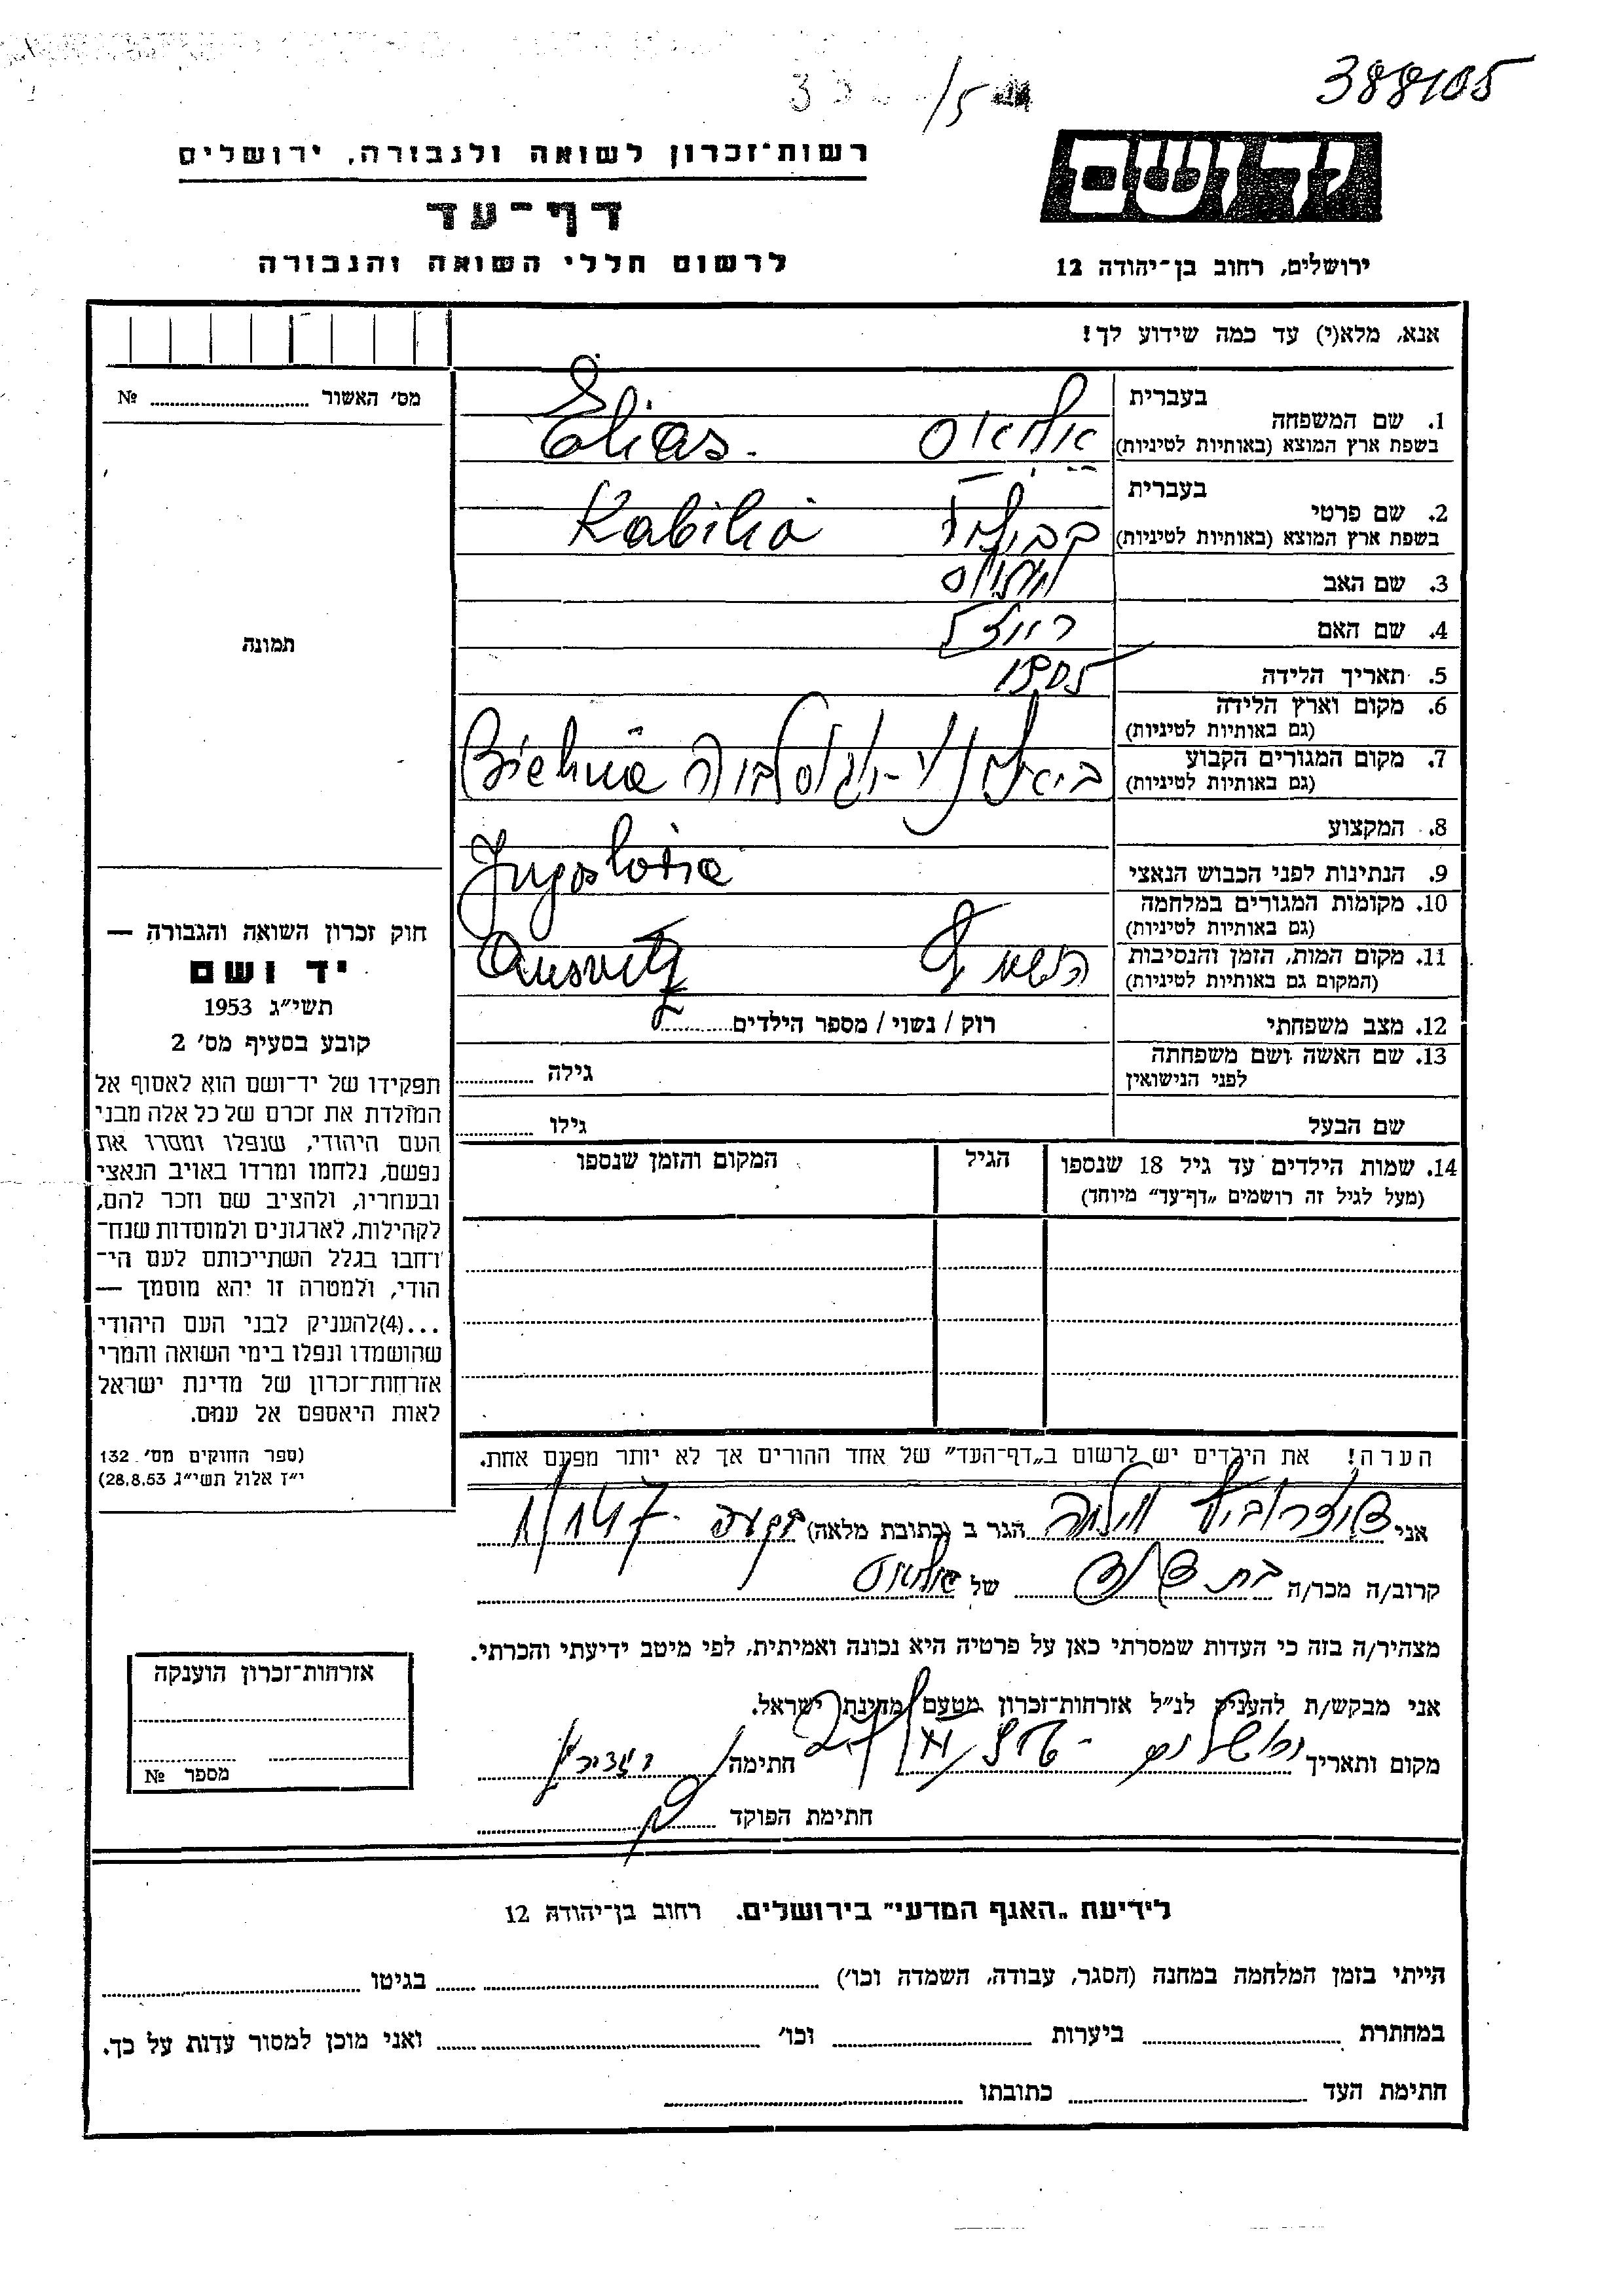 388105
רשות־זכרון לשואה ולגבורה, ירושלים
יד ושם
דף־עד
לרשום חללי השואה והגבורה
ירושלים, רחוב בן־יהודה 12
אנא, מלא(י) עד כמה שידוע לך!
מס' האשור № 
בעברית
1. שם המשפחה
בשפת ארץ המוצא (באותיות לטיניות)
אליאס Elias.
בעברית
2. שם פרטי
בשפת ארץ המוצא (באותיות לטיניות)
Kabiliá
3. שם האב
4. שם האם
5. תאריך הלידה 1905
6. מקום וארץ הלידה
(גם באותיות לטיניות)
7. מקום המגורים הקבוע
(גם באותיות לטיניות)
8. המקצוע
Jugoslavia
9. הנתינות לפני הכבוש הנאצי
10. מקומות המגורים במלחמה
(גם באותיות לטיניות)
11. מקום המות, הזמן והנסיבות
(המקום גם באותיות לטיניות)
Ausvitz
12. מצב משפחתי רווק / נשוי / מספר הילדים
13. שם האשה ושם משפחתה
לפני הנישואין
גילה
שם הבעל גילו
14. שמות הילדים עד גיל 18 שנספו
(מעל לגיל זה רושמים „דף־עד” מיוחד)
הגיל
המקום והזמן שנספו
הערה! את הילדים יש לרשום ב„דף־העד” של אחד ההורים אך לא יותר מפעם אחת.
תמונה
חוק זכרון השואה והגבורה —
יד ושם
תשי"ג 1953
קובע בסעיף מס' 2
תפקידו של יד־ושם הוא לאסוף אל
המולדת את זכרם של כל אלה מבני
העם היהודי, שנפלו ומסרו את
נפשם, נלחמו ומרדו באויב הנאצי
ובעוזריו, ולהציב שם וזכר להם,
לקהילות, לארגונים ולמוסדות שנח־
רחבו בגלל השתייכותם לעם הי־
הודי, ולמטרה זו יהא מוסמך —
...(4) להעניק לבני העם היהודי
שהושמדו ונפלו בימי השואה והמרי
אזרחות־זכרון של מדינת ישראל
לאות היאספם אל עמם.
(ספר החוקים מס' 132
י"ז אלול תשי"ג 28.8.53)
אני הגר ב (כתובת מלאה)
קרוב/ה מכר/ה של אליאס
מצהיר/ה בזה כי העדות שמסרתי כאן על פרטיה היא נכונה ואמיתית, לפי מיטב ידיעתי והכרתי.
אני מבקש/ת להעניק לנ"ל אזרחות־זכרון מטעם מדינת ישראל.
מקום ותאריך ירושלים חתימה
חתימת הפוקד
אזרחות־זכרון הוענקה
מספר №
לידיעת „האגף המדעי” בירושלים. רחוב בן־יהודה 12
הייתי בזמן המלחמה במחנה (הסגר, עבודה, השמדה וכו') בגיטו
במחתרת ביערות וכו' ואני מוכן למסור עדות על כך.
חתימת העד כתובתו